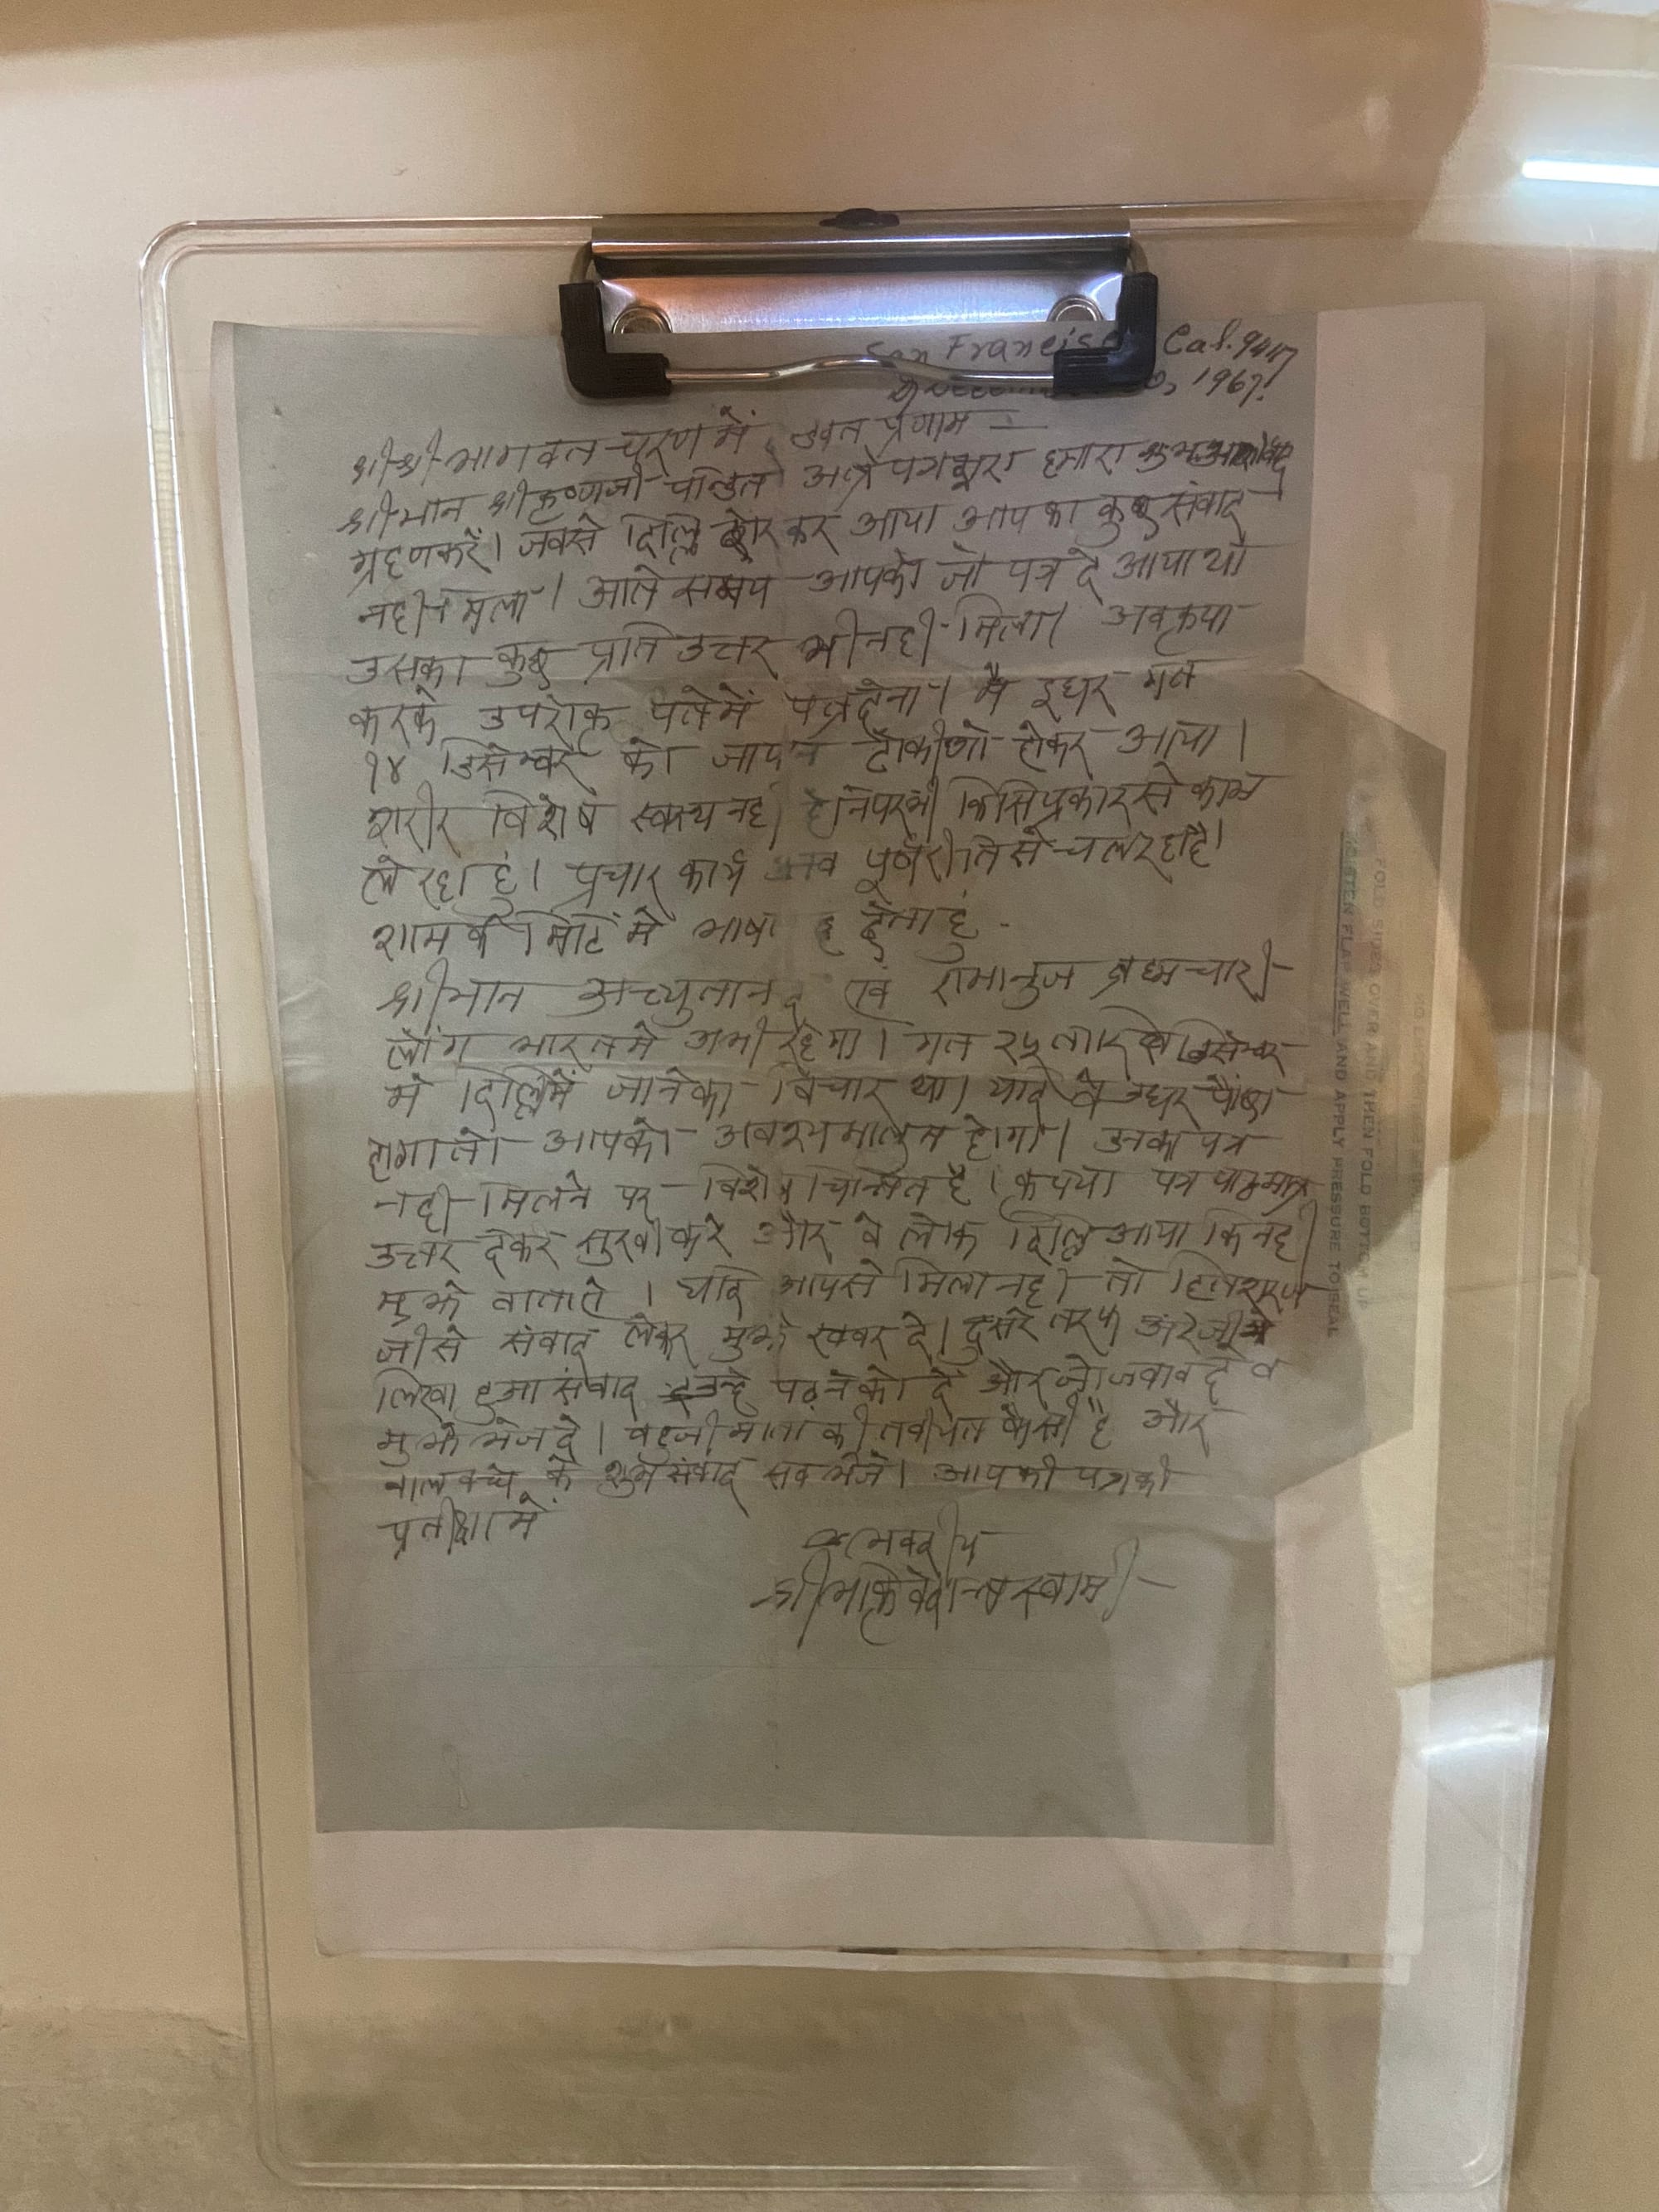 San Francisco Cal. 94117
1967.
श्रीश्रीभागवत चरण में दंडवत प्रणाम —
श्रीमान श्रीकृष्णजी पन्डित अत्र पत्रद्वारा हमारा शुभआशीर्वाद
ग्रहणकरें। जबसे दिल्लि छोर कर आया आपका कुछ संवाद
नही मिला। आते समय आपको जो पत्र दे आया था
उसका कुछ प्रति उत्तर भी नही मिला। अब कृपा
करके उपरोक्त पतेमें पत्र देना। मै इधर गत
१४ डिसेम्बर को जापान टोकीओ होकर आया।
शरीर विशेष स्वस्थ नही है तिपरभी किसिप्रकार से काम
ले रहा हुं। प्रचार कार्य सब पूर्बरीतिसे चल रहा है।
शाम के मिटिं मे भाषण देता हुं.
श्रीमान अच्युतानन्द एवं रामानुज ब्रह्मचारी
लोग भारतमे अभी रहेगा। गत २५ तारिखे डिसेम्बर
मे दिल्लिमें जानेका विचार था। यदि वे उधर पौंछा
होगा तो आपको अवश्य मालुम होगा। उनका पत्र
नही मिलने पर विशेष चिन्तित है। कृपया पत्र पाठमात्र
उत्तर देकर सुखी करे और वे लोक दिल्लि आया कि नही
मुझे बाताते। यदि आपसे मिला नही तो हितशरण
जीसे संवाद लेकर मुझे खबर दे। दुसरे तरफ अंरेजीमे
लिखा हुआ संवाद उन्हे पढ़ने को दे और जो जवाब दे व
मुझे भेज दे। बहजी माता की तबीयत कैसी है और
बालबच्चे के शुभ संवाद सब भेजे। आपकी पत्रकी
प्रतीक्षा में
भवदीय
श्रीभक्तिवेदान्त स्वामी
FOLD SIDES OVER AND THEN FOLD BOTTOM UP
MOISTEN FLAP WELL AND APPLY PRESSURE TO SEAL